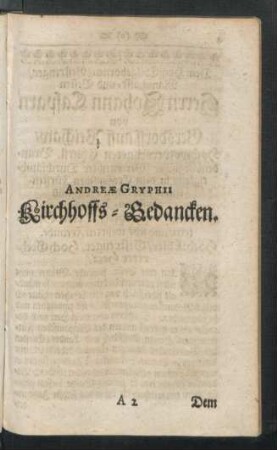 ANDREÆ GRYPHII
Kirchhoffs-Gedancken.
A 2 Dem